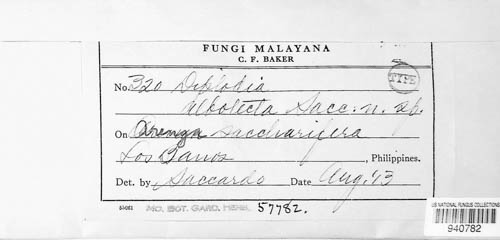 FUNGI MALAYANA
C. F. BAKER
TYPE
No. 320 Diplodia
albotecta Sacc. n. sp.
On Arenga saccharifera
Los Banos, Philippines.
Det. by Saccardo Date Aug. '13
MO. BOT. GARD. HERB. 57782.
US NATIONAL FUNGUS COLLECTIONS
940782